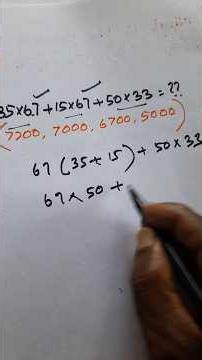 35×67+15×67+50×33=??
(7200, 7000, 6700, 5000)
67(35+15)+50×33
67×50+